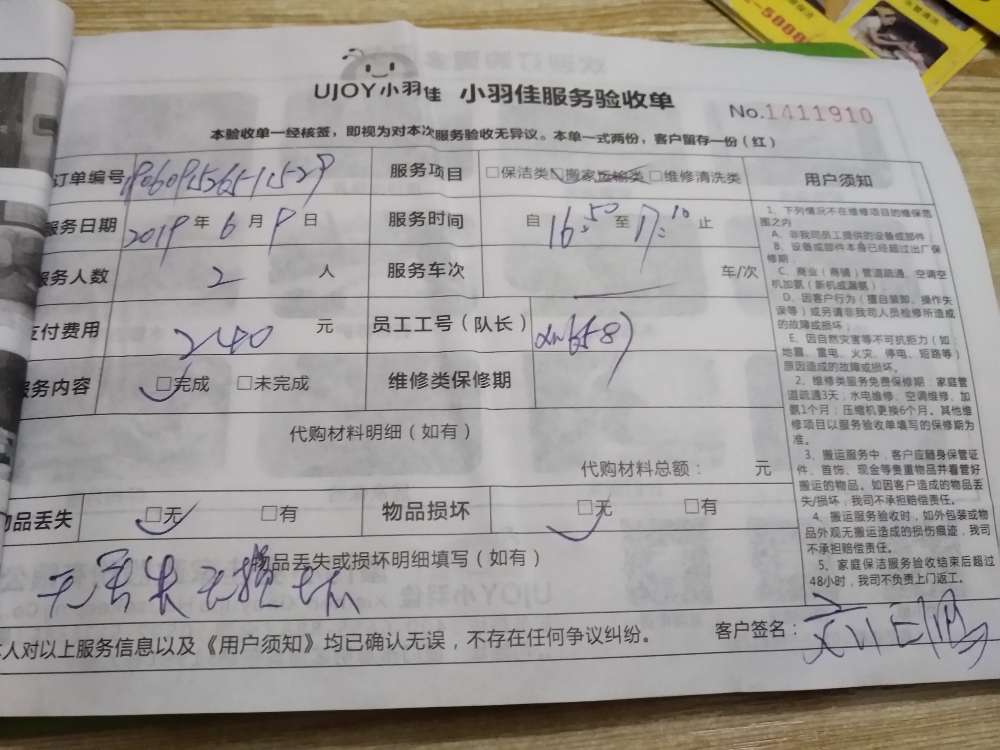 UJOY小羽佳 小羽佳服务验收单
No.1411910
本验收单一经核签，即视为对本次服务验收无异议。本单一式两份，客户留存一份（红）
订单编号 服务项目 □保洁类 □搬家运输类 □维修清洗类
服务日期 2019 年 6 月 9 日 服务时间 自 16:50 至 17:10 止
服务人数 2 人 服务车次 车/次
支付费用 240 元 员工工号（队长）
服务内容 □完成 □未完成 维修类保修期
代购材料明细（如有）
代购材料总额： 元
物品丢失 □无 □有 物品损坏 □无 □有
物品丢失或损坏明细填写（如有）
无丢失无损坏
本人对以上服务信息以及《用户须知》均已确认无误，不存在任何争议纠纷。 客户签名：
用户须知
1、下列情况不在维修项目的维保范
围之内
A、非我司员工提供的设备或部件；
B、设备或部件本身已经超过出厂保
修期；
C、商业（商铺）管道疏通、空调空
机加氨（新机或漏氨）
D、因客户行为（擅自装卸、操作失
误等）或另请非我司人员检修所造成
的故障或损坏；
E、因自然灾害等不可抗拒力（如：
地震、雷电、火灾、停电、短路等）
原因造成的故障或损坏。
2、维修类服务免费保修期：家庭管
道疏通3天；水电维修、空调维修、加
氨1个月；压缩机更换6个月。其他维
修项目以服务验收单填写的保修期为
准。
3、搬运服务中，客户应随身保管证
件、首饰、现金等贵重物品并看管好
搬运的物品。如因客户造成的物品丢
失/损坏，我司不承担赔偿责任。
4、搬运服务验收时，如外包装或物
品外观无搬运造成的损伤痕迹，我司
不承担赔偿责任。
5、家庭保洁服务验收结束后超过
48小时，我司不负责上门返工。